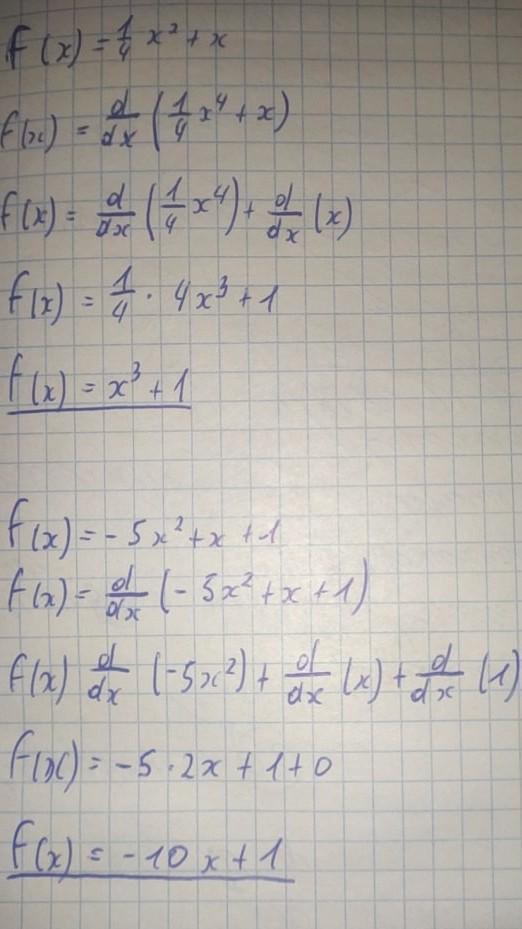 f(x) = 1/4 x² + x
f(x) = d/dx (1/4 x⁴ + x)
f(x) = d/dx (1/4 x⁴) + d/dx (x)
f(x) = 1/4 · 4x³ + 1
f(x) = x³ + 1
f(x) = -5x² + x + 1
f(x) = d/dx (-5x² + x + 1)
f(x) d/dx (-5x²) + d/dx (x) + d/dx (1)
f(x) = -5 · 2x + 1 + 0
f(x) = -10x + 1